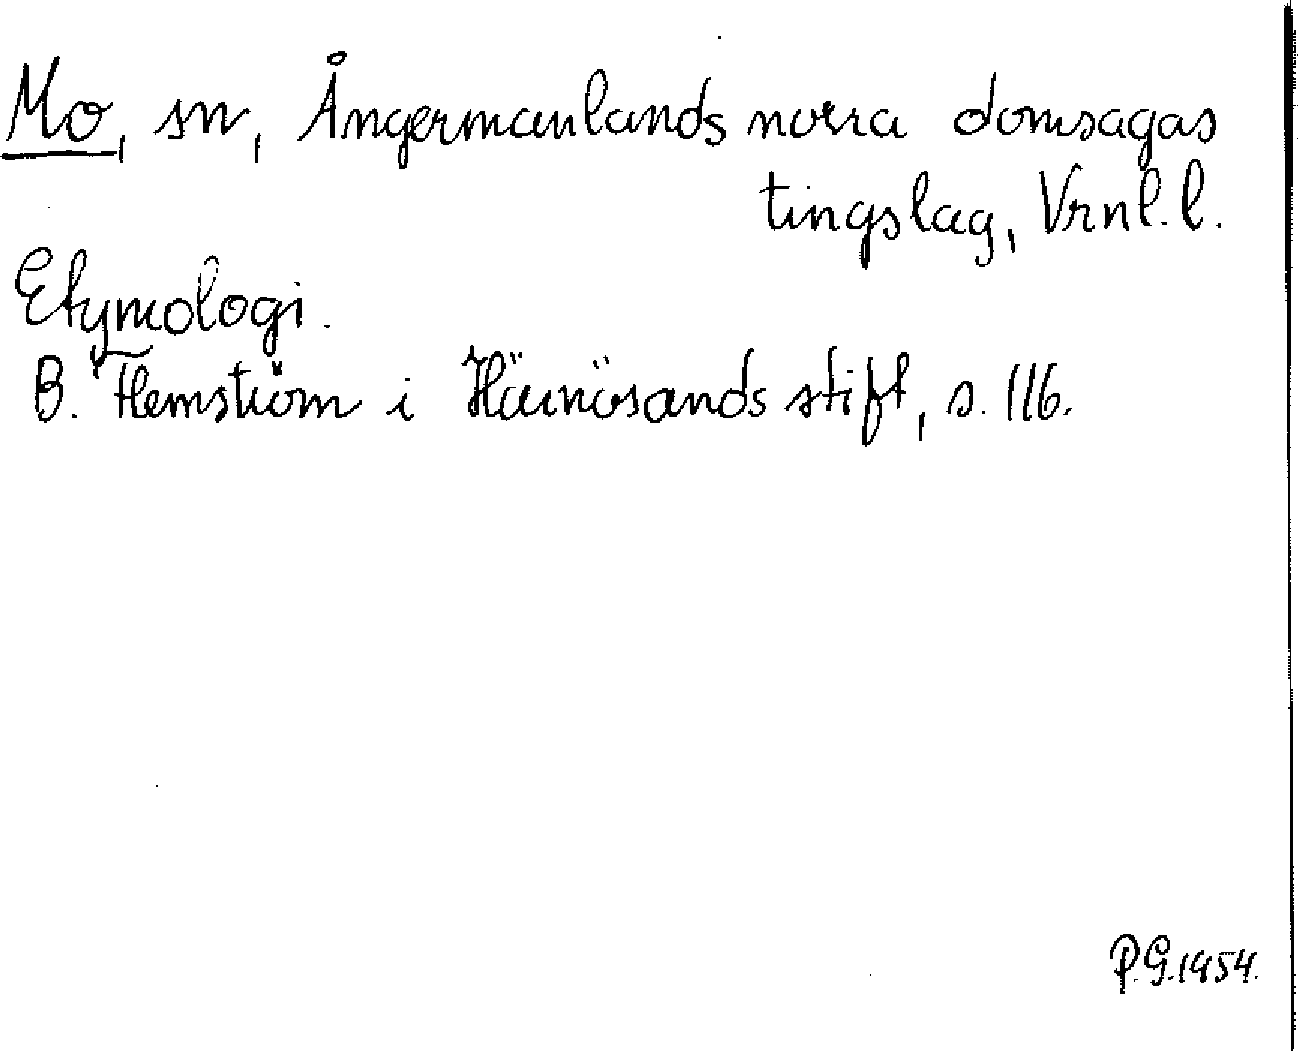 Mo, sn, Ångermanlands norra domsagas
tingslag, Vrnl. l.
Etymologi.
B. Flemström i Härnösands stift, s. 116.
P.G. 1954.